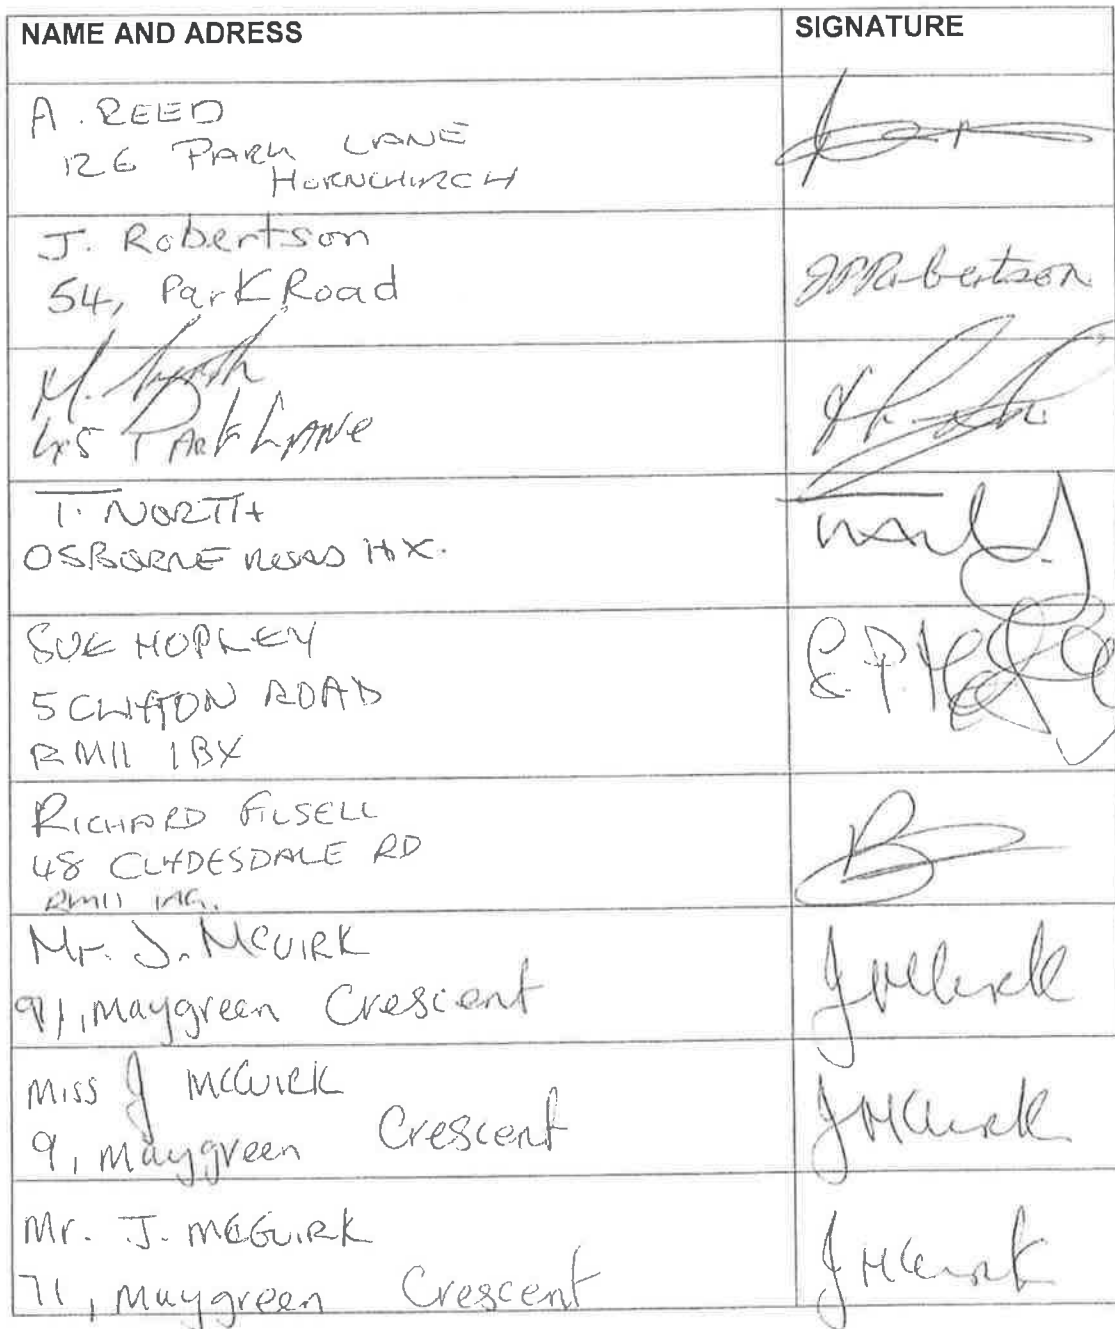 NAME AND ADRESS
SIGNATURE
A. REED
126 PARK LANE
HORNCHURCH
J. Robertson
54, Park Road
JMRobertson
M.
45 Park Lane
T. NORTH
OSBORNE ROAD HX.
SUE HOPLEY
5 CLIFTON ROAD
RM11 1BX
S.P.
RICHARD FILSELL
48 CLYDESDALE RD
RM11
Mr. J. McGUIRK
91, Maygreen Crescent
J McGuirk
Miss J McGUIRK
9, Maygreen Crescent
J McGuirk
Mr. J. McGUIRK
71, Maygreen Crescent
J McGuirk